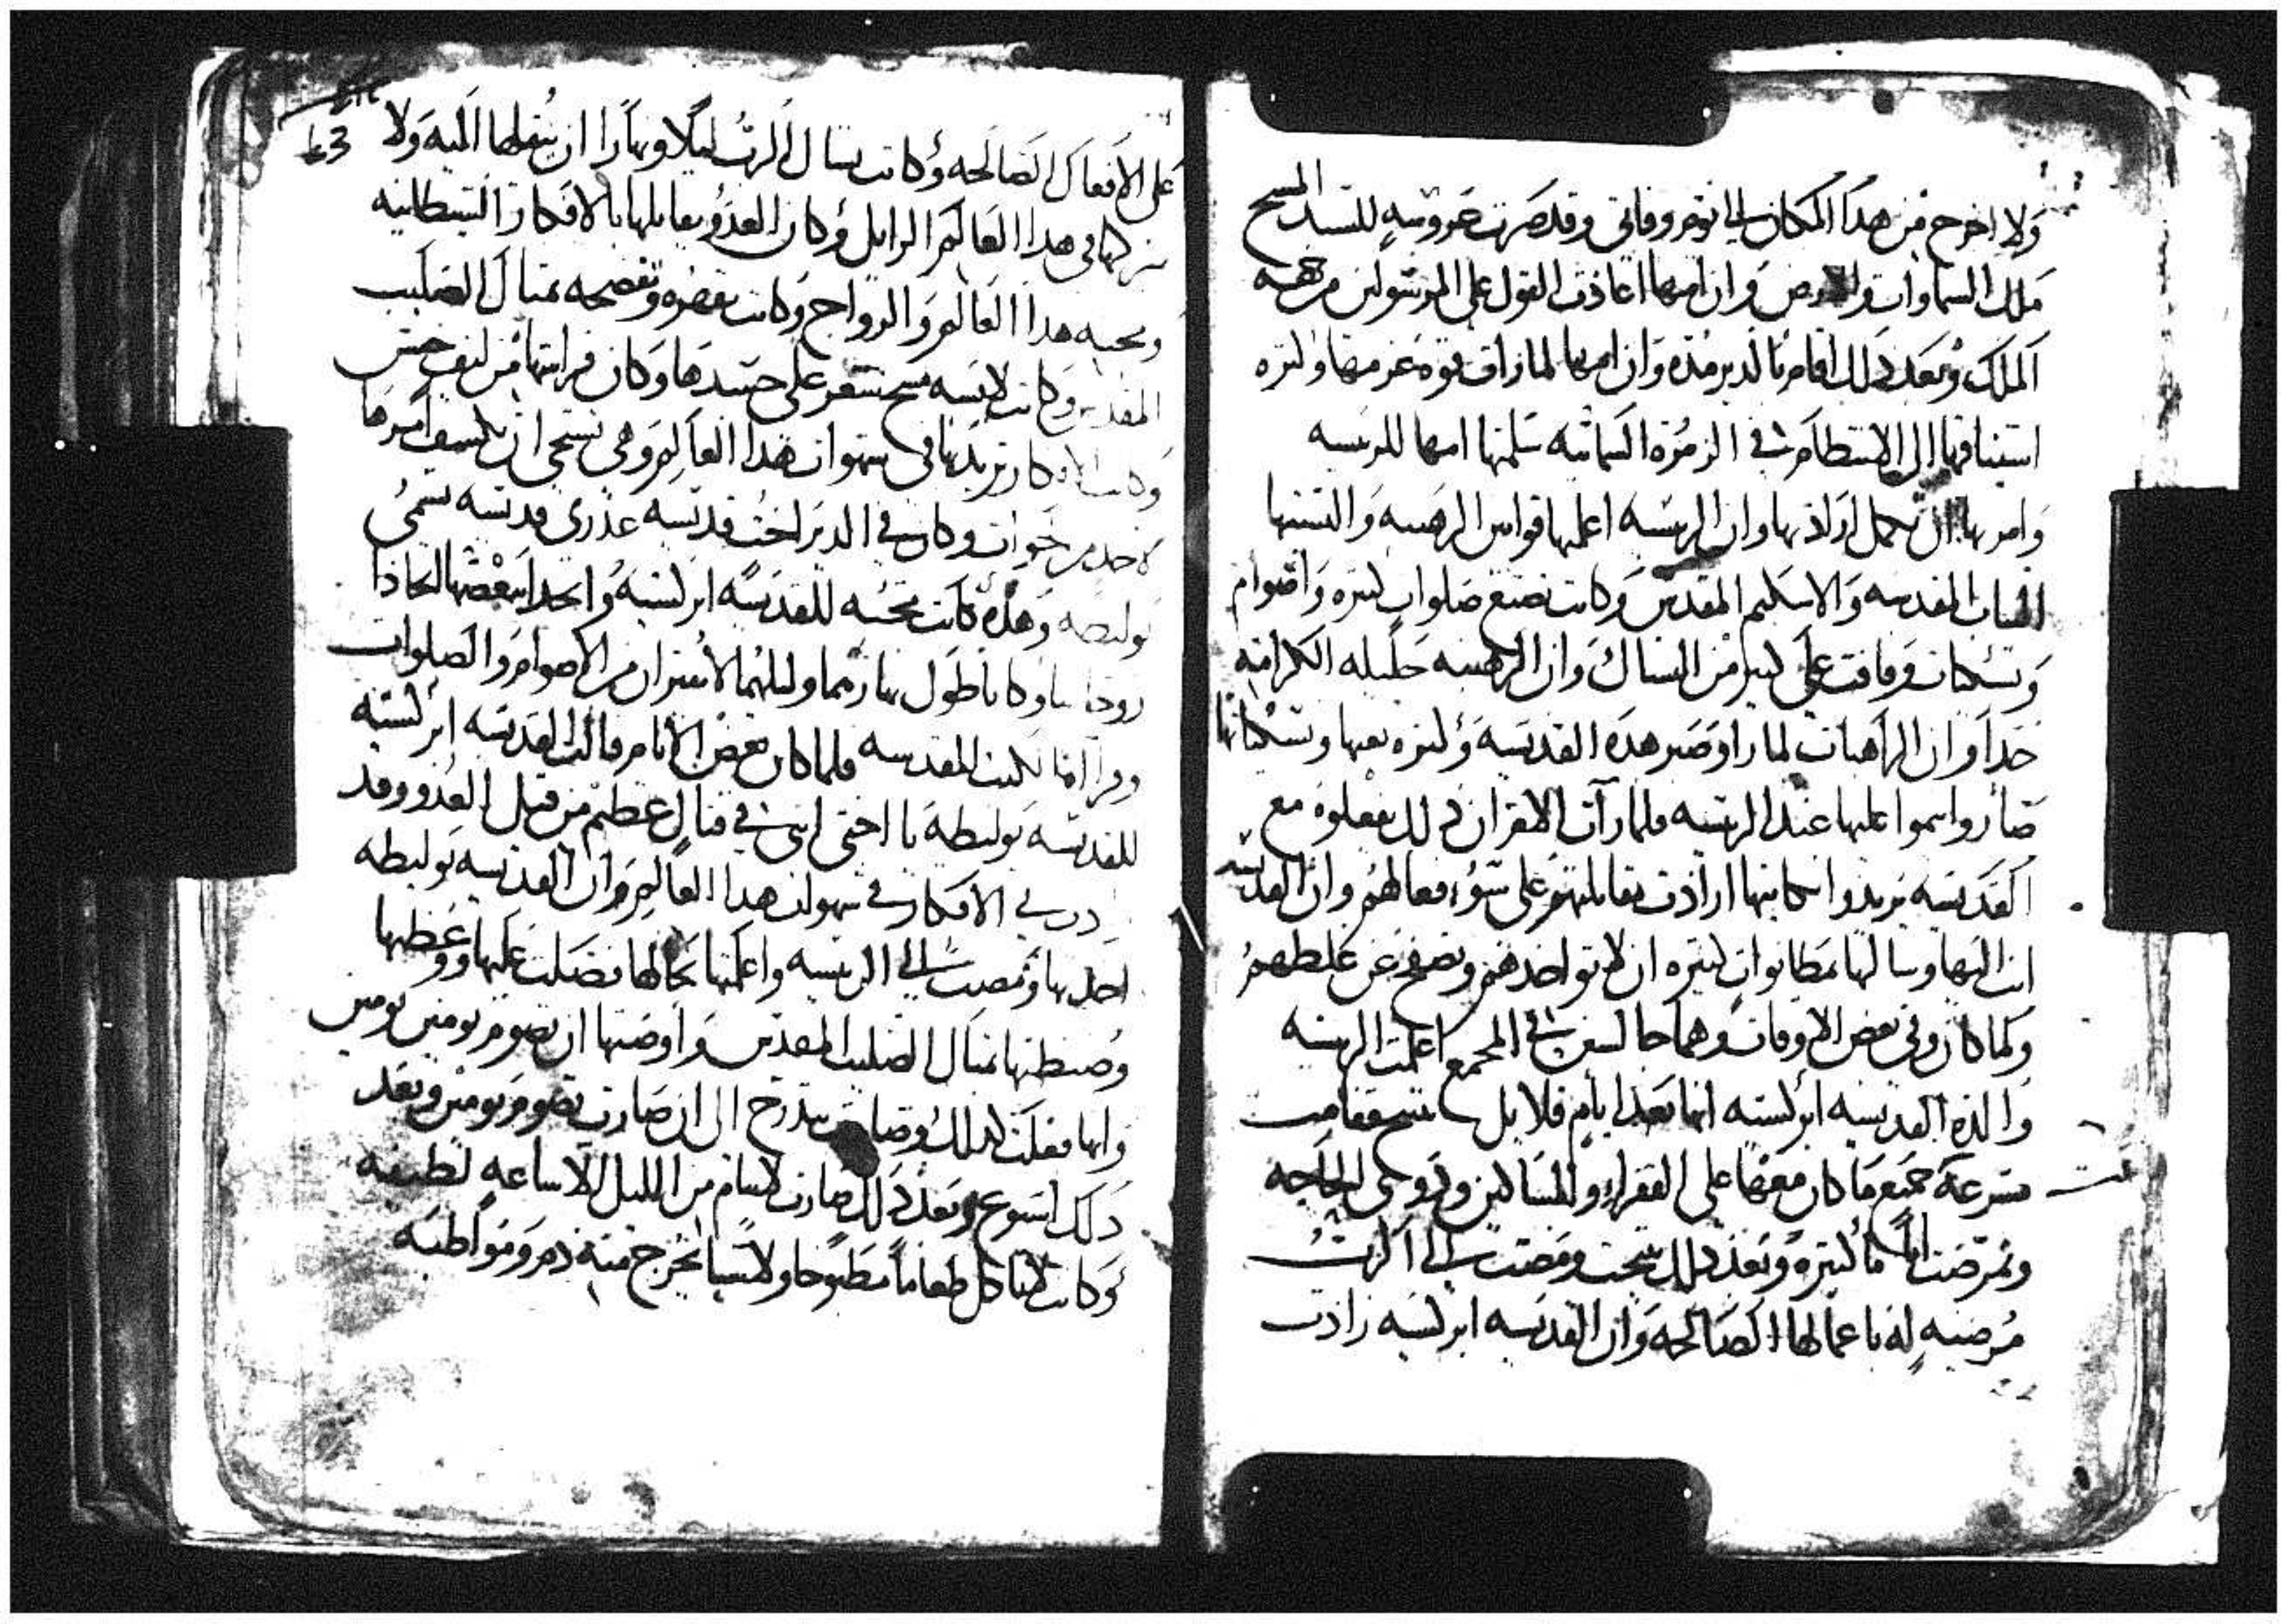 ولا اخرج من هدا المكان الى يوم وفاتي وقد صرت عروسه للسيد المسيح
ملك السماوات والارض وان امها اعادت القول على المرسولين من جهة
الملك وبعد دلك اقامو بالدير مده وان امها لما رات قوة عزمها وكتره
اشتياقها الى الانتظام في الزمره السمائيه سلمتها امها للريسه
وامرتها ان تكمل ارادتها وان الريسه اعلمتها قوانين الرهبنه والبستها
التياب المقدسه والاسكيم المقدس وكانت تصنع صلوات كتيره واصوام
ونسكيات وفاقت على كتير من النساك وان الرهبنه جليله الكرامه
جدا وان الراهبات لما راو صبر هده القديسه وكتره تعبها ونسكياتها
صاروا ينموا عليها عند الريسه فلما رات الاقران دلك يفعلوه مع
القديسه يريدوا اهانتها ارادت تقابلهم على سوء فعالهم وان القديسه
اتت اليها وسالتها بمطانوات كتيره ان لا تواخدهم وتصفح عن غلطهم
ولما كان وفي بعض الاوقات وهما جالسين في المجمع اعلمت الريسه
والدة القديسه ابركسيه انها بعد ايام قلايل تتنيح فقامت
مسرعة جميع ما كان معها على الفقراء والمساكين ودوي الحاجه
وتمرضت اياما كتيره وبعد دلك تنيحت ومضت الى الرب
مرضيه له باعمالها الصالحه وان القديسه ابركسيه زادت
43
على الافعال الصالحه وكانت تسال الرب ليلا ونهارا ان ينقلها اليه ولا
يتركها في هدا العالم الزايل وكان العدو يقاتلها بالافكار الشيطانيه
ومحبه هدا العالم والزواج وكانت تقهره وتفضحه بمتال الصليب
المقدس وكانت لابسه مسح شعر على جسدها وكان فراشها من ليف خشن
وكانت الافكار تزيد بها في شهوات هدا العالم وهي تستحي ان تكشف امرها
لاحد من خوات وكان في الدير اخت قديسه عدرى قديسه تسمى
يوليطه وهده كانت محبه للقديسه ابركسيه واتحدا ببعضهما اتحادا
روحانيا وكانا طول نهارهما وليلهما لا يفتران من الاصوام والصلوات
وقراة الكتب المقدسه فلما كان بعض الايام قالت القديسه ابركسيه
للقديسه يوليطه يا اختي انني في قتال عظيم من قبل العدو وقد
الافكار في شهوات هدا العالم وان القديسه يوليطه
اخدتها ومضت الى الريسه واعلمتها بحالها فصلت عليها ووعظتها
وضبطتها بمتال الصليب المقدس واوصتها ان تصوم يومين يومين
وانها فعلت كدلك وصارت بتدرج الى ان صارت تصوم يومين وبعد
دلك اسبوع وبعد دلك صارت لا تنام من الليل الا ساعه لطيفه
وكانت لا تاكل طعاما مطبوخا ولا شيا يخرج منه دم ومواظبه